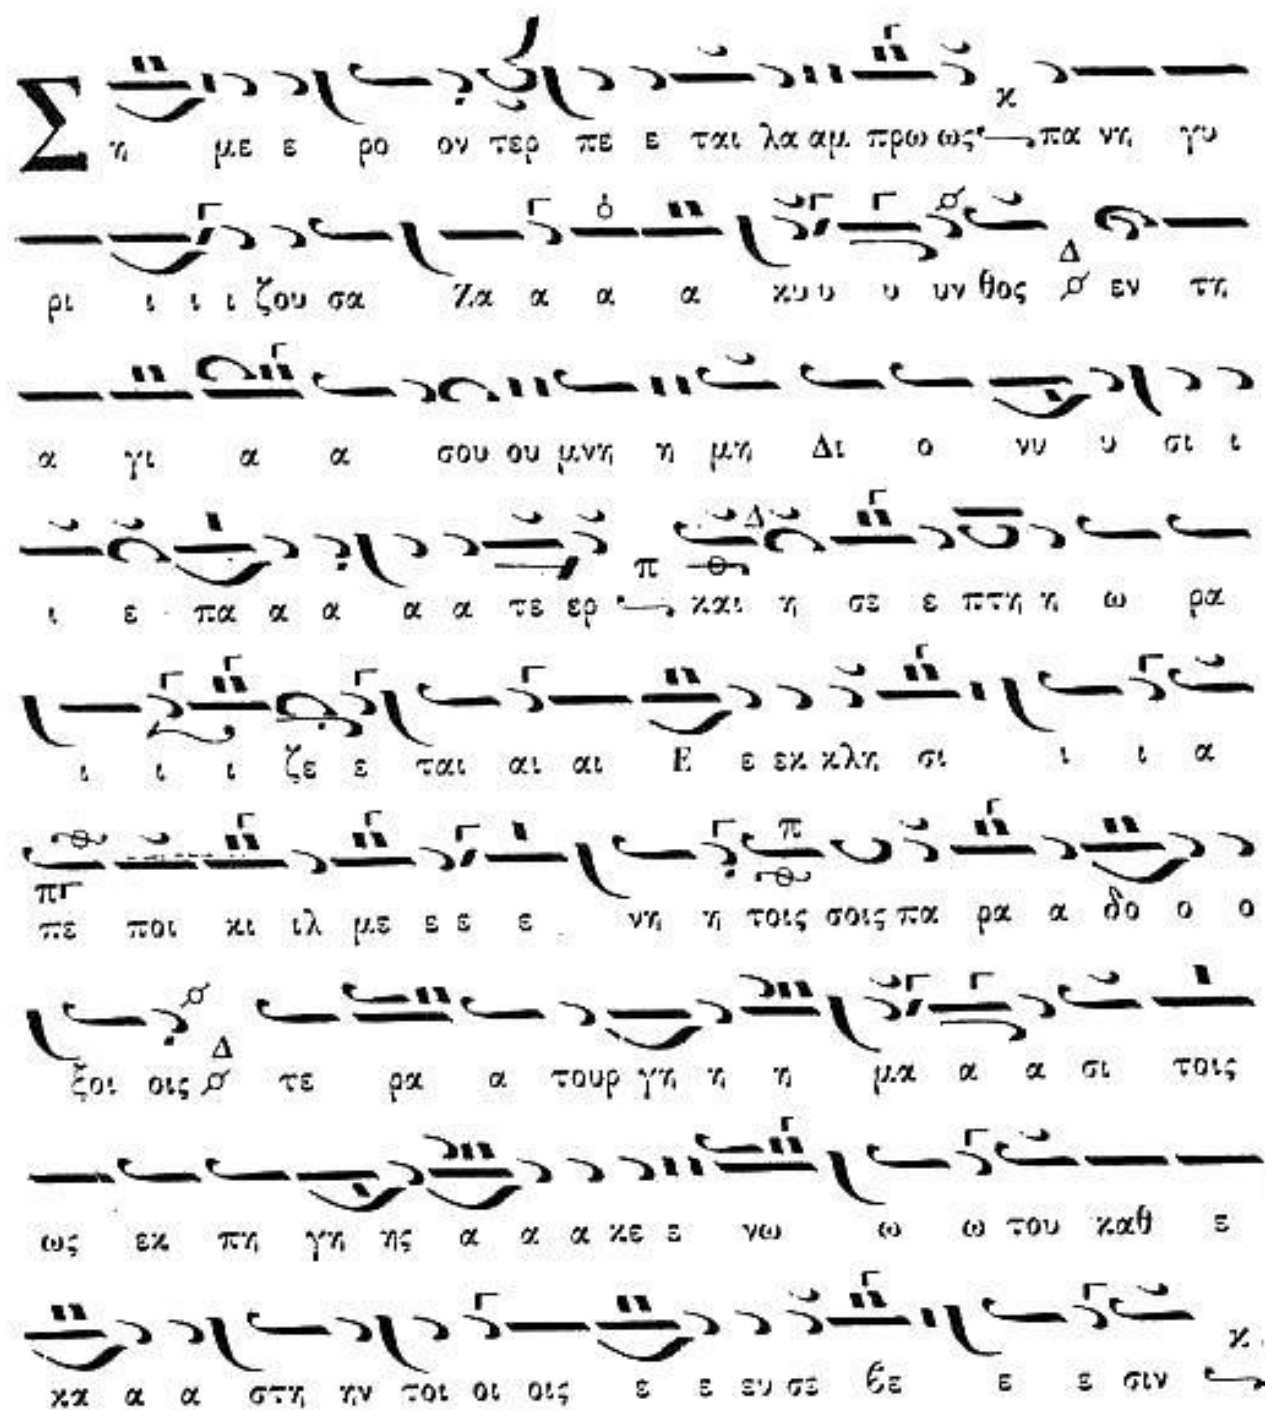 Ση με ε ρο ον τερ πε ε ται λα αμ πρω ως κ πα νη γυ
ρι ι ι ι ζου σα Ζα α α α κυ υ υ υν θος Δ εν τη
α γι α α σου ου μνη η μη Δι ο νυ υ σι ι
ι ε πα α α α α τε ερ π και η σε ε πτη η ω ρα
ι ι ι ζε ε ται αι αι Ε ε εκ κλη σι ι ι α
πε ποι κι ιλ με ε ε ε νη η τοις σοις πα ρα α δο ο ο
ξοι οις Δ τε ρα α τουρ γη η η μα α α σι τοις
ως εκ πη γη ης α α α κε ε νω ω ω του καθ ε
κα α α στη ην τοι οι οις ε ε ευ σε βε ε ε σιν κ